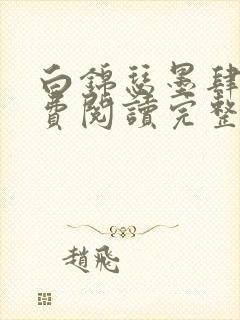 白錦瑟墨肆
費閱讀完整
趙飛